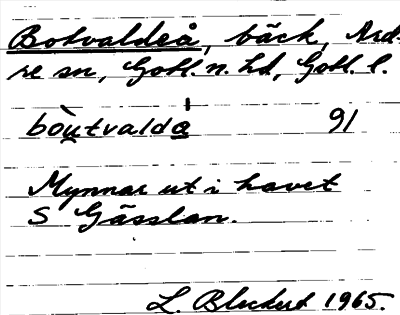 Botvaldeå, bäck, Ard-
re sn, Gotl. n. hd, Gotl. l.
bòu̯tvaldå̍ 91
Mynnar ut i havet
S Gässlan.
L. Bleckert 1965.